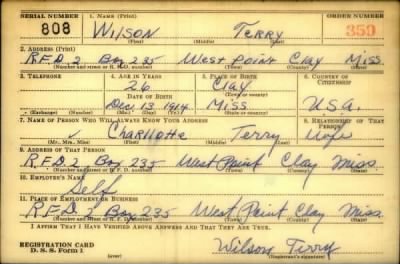 SERIAL NUMBER 1. NAME (Print) ORDER NUMBER
808 Wilson Terry 359
(First) (Middle) (Last)
2. ADDRESS (Print)
R.F.D. 2 Box 235 West Point Clay Miss.
(Number and street or R. F. D. number) (Town) (County) (State)
3. TELEPHONE 4. AGE IN YEARS 5. PLACE OF BIRTH 6. COUNTRY OF CITIZENSHIP
26 Clay
DATE OF BIRTH (Town or county)
Dec. 13 1914 Miss. U.S.A.
(Exchange) (Number) (Mo.) (Day) (Yr.) (State or country)
7. NAME OF PERSON WHO WILL ALWAYS KNOW YOUR ADDRESS 8. RELATIONSHIP OF THAT PERSON
Charllotte Terry Wife
(Mr., Mrs., Miss) (First) (Middle) (Last)
9. ADDRESS OF THAT PERSON
R.F.D. 2 Box 235 West Point Clay Miss.
(Number and street or R. F. D. number) (Town) (County) (State)
10. EMPLOYER'S NAME
Self
11. PLACE OF EMPLOYMENT OR BUSINESS
R.F.D. 2 Box 235 West Point Clay Miss.
(Number and street or R. F. D. number) (Town) (County) (State)
I AFFIRM THAT I HAVE VERIFIED ABOVE ANSWERS AND THAT THEY ARE TRUE.
REGISTRATION CARD
D. S. S. Form 1 Wilson Terry
(Registrant's signature)